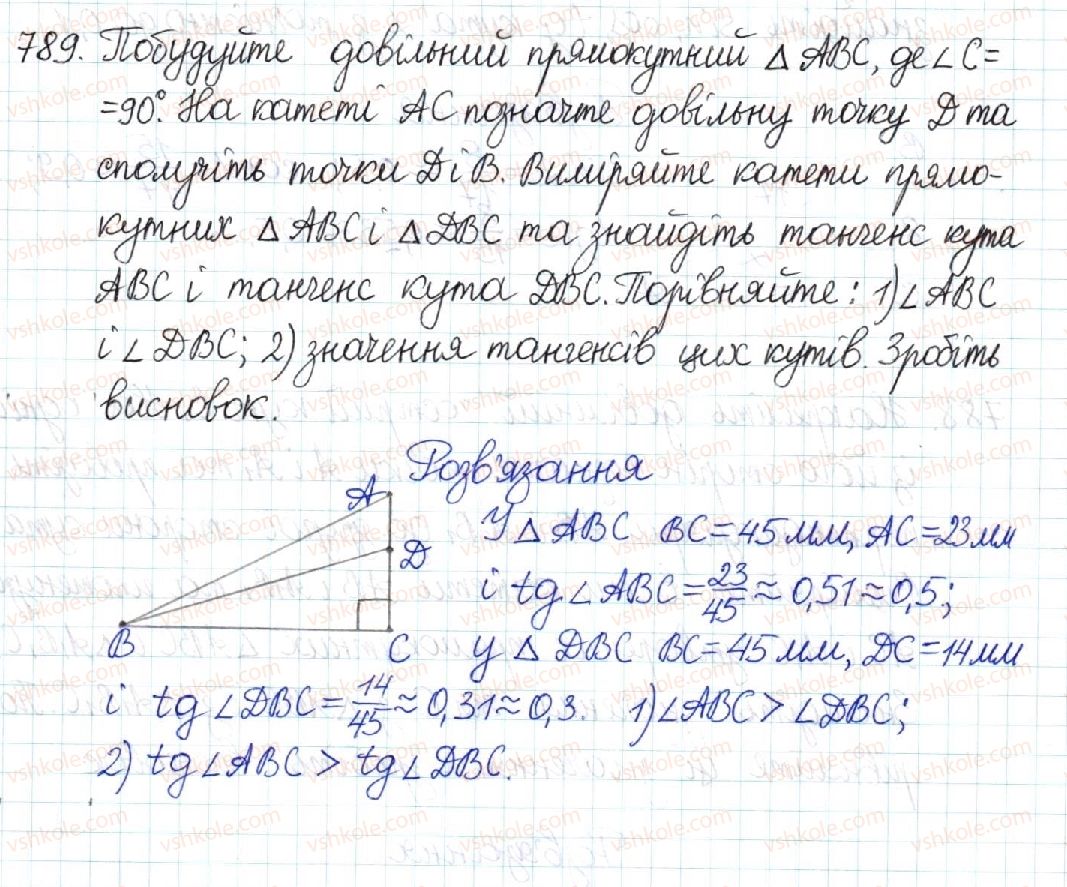 789. Побудуйте довільний прямокутний △ ABC, де ∠ C=
=90°. На катеті AC позначте довільну точку D та
сполучіть точки D і B. Виміряйте катети прямо-
кутних △ ABC і △ DBC та знайдіть танченс кута
ABC і танченс кута DBC. Порівняйте: 1) ∠ ABC
і ∠ DBC; 2) значення тангенсів цих кутів. Зробіть
висновок.
Розв'язання
A
D
B
C
У △ ABC BC = 45 мм, AC = 23 мм
і tg ∠ ABC = 23/45 ≈ 0,51 ≈ 0,5;
у △ DBC BC = 45 мм, DC = 14 мм
і tg ∠ DBC = 14/45 ≈ 0,31 ≈ 0,3. 1) ∠ ABC > ∠ DBC;
2) tg ∠ ABC > tg ∠ DBC.